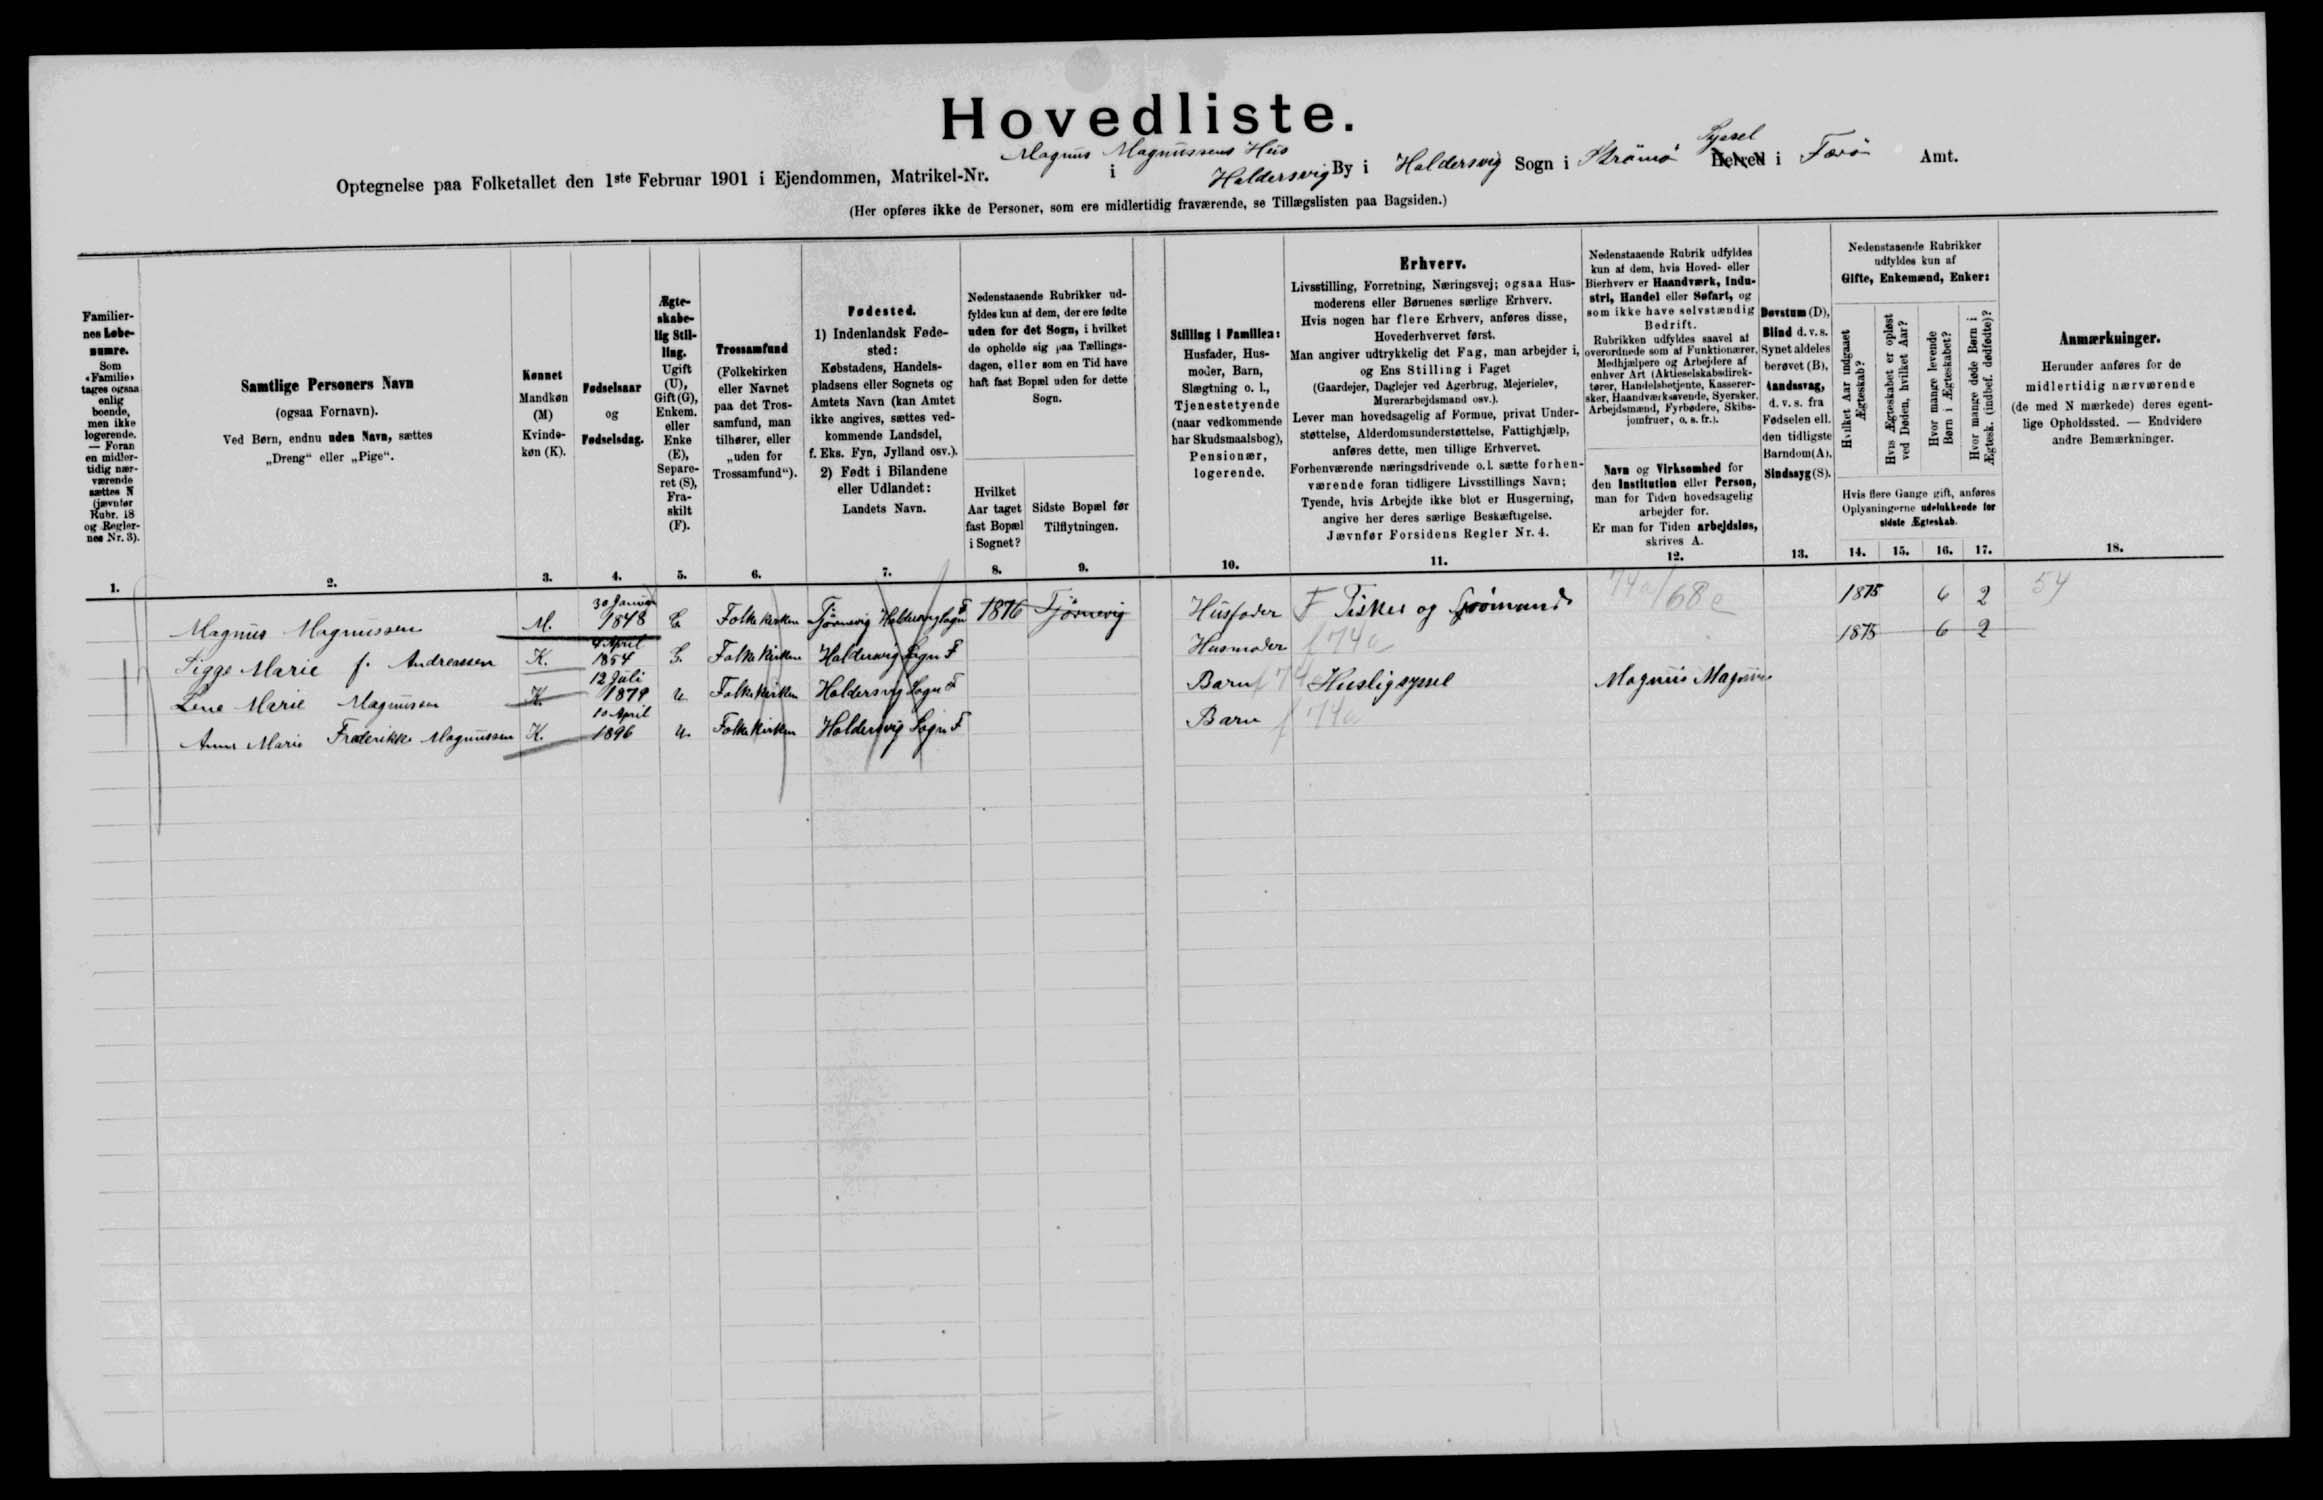 Hovedliste.
Magnus Magnussens Hus
Optegnelse paa Folketallet den 1ste Februar 1901 i Ejendommen, Matrikel-Nr. i Haldersvig By i Haldersvig Sogn i Strömö Syssel Herred i Færö Amt.
(Her opføres ikke de Personer, som ere midlertidig fraværende, se Tillægslisten paa Bagsiden.)
Familier-
nes Løbe-
numre.
Som
«Familie»
tages ogsaa
enlig
boende,
men ikke
logerende.
— Foran
en midler-
tidig nær-
værende
sættes N
(jævnfør
Rubr. 18
og Regler-
nes Nr. 3).
1.
Samtlige Personers Navn
(ogsaa Fornavn).
Ved Børn, endnu uden Navn, sættes
„Dreng“ eller „Pige“.
2.
Kønnet
Mandkøn
(M)
Kvinde-
køn (K).
3.
Fødselsaar
og
Fødselsdag.
4.
Ægte-
skabe-
lig Stil-
ling.
Ugift
(U),
Gift (G),
Enkem.
eller
Enke
(E),
Separe-
ret (S),
Fra-
skilt
(F).
5.
Trossamfund
(Folkekirken
eller Navnet
paa det Tros-
samfund, man
tilhører, eller
„uden for
Trossamfund“).
6.
Fødested.
1) Indenlandsk Føde-
sted:
Købstadens, Handels-
pladsens eller Sognets og
Amtets Navn (kan Amtet
ikke angives, sættes ved-
kommende Landsdel,
f. Eks. Fyn, Jylland osv.).
2) Født i Bilandene
eller Udlandet:
Landets Navn.
7.
Nedenstaaende Rubrikker ud-
fyldes kun af dem, der ere fødte
uden for det Sogn, i hvilket
de opholde sig paa Tællings-
dagen, eller som en Tid have
haft fast Bopæl uden for dette
Sogn.
Hvilket
Aar taget
fast Bopæl
i Sognet?
8.
Sidste Bopæl før
Tilflytningen.
9.
Stilling i Familien:
Husfader, Hus-
moder, Barn,
Slægtning o. l.,
Tjenestetyende
(naar vedkommende
har Skudsmaalsbog),
Pensionær,
logerende.
10.
Erhverv.
Livsstilling, Forretning, Næringsvej; ogsaa Hus-
moderens eller Børnenes særlige Erhverv.
Hvis nogen har flere Erhverv, anføres disse,
Hovederhvervet først.
Man angiver udtrykkelig det Fag, man arbejder i,
og Ens Stilling i Faget
(Gaardejer, Daglejer ved Agerbrug, Mejerielev,
Murerarbejdsmand osv.).
Lever man hovedsagelig af Formue, privat Under-
støttelse, Alderdomsunderstøttelse, Fattighjælp,
anføres dette, men tillige Erhvervet.
Forhenværende næringsdrivende o. l. sætte forhen-
værende foran tidligere Livsstillings Navn;
Tyende, hvis Arbejde ikke blot er Husgerning,
angive her deres særlige Beskæftigelse.
Jævnfør Forsidens Regler Nr. 4.
11.
Nedenstaaende Rubrik udfyldes
kun af dem, hvis Hoved- eller
Bierhverv er Haandværk, Indu-
stri, Handel eller Søfart, og
som ikke have selvstændig
Bedrift.
Rubrikken udfyldes saavel af
overordnede som af Funktionærer,
Medhjælpere og Arbejdere af
enhver Art (Aktieselskabsdirek-
tører, Handelsbetjente, Kasserer-
sker, Haandværkssvende, Syersker,
Arbejdsmænd, Fyrbødere, Skibs-
jomfruer, o. s. fr.).
Navn og Virksomhed for
den Institution eller Person,
man for Tiden hovedsagelig
arbejder for.
Er man for Tiden arbejdsløs,
skrives A.
12.
Døvstum (D),
Blind d. v. s.
Synet aldeles
berøvet (B),
Aandssvag,
d. v. s. fra
Fødselen ell.
den tidligste
Barndom (A),
Sindssyg (S).
13.
Nedenstaaende Rubrikker
udfyldes kun af
Gifte, Enkemænd, Enker:
Hvilket Aar indgaaet
Ægteskab?
Hvis Ægteskabet er opløst
ved Døden, hvilket Aar?
Hvor mange levende
Børn i Ægteskabet?
Hvor mange døde Børn i
Ægtesk. (indbef. dødfødte)?
Hvis flere Gange gift, anføres
Oplysningerne udelukkende for
sidste Ægteskab.
14. 15. 16. 17.
Anmærkninger.
Herunder anføres for de
midlertidig nærværende
(de med N mærkede) deres egent-
lige Opholdssted. — Endvidere
andre Bemærkninger.
18.
Magnus Magnussen M. 30 Januar 1848 G. Folkekirken Tjørnevig Haldersvig Sogn F 1876 Tjörnevig Husfader F Fisker og 74a/68e 1875 6 2 54
Sigge Marie f. Andreassen K. 4 April 1854 G. Folkekirken Haldersvig Sogn F Husmoder f 74a 1875 6 2
Lene Marie Magnussen K. 12 Juli 1879 U. Folkekirken Haldersvig Sogn F Barn f 74 Husligsyssel Magnus
Anna Marie Frederikke Magnussen K. 10 April 1896 U. Folkekirken Haldersvig Sogn F Barn f 74a